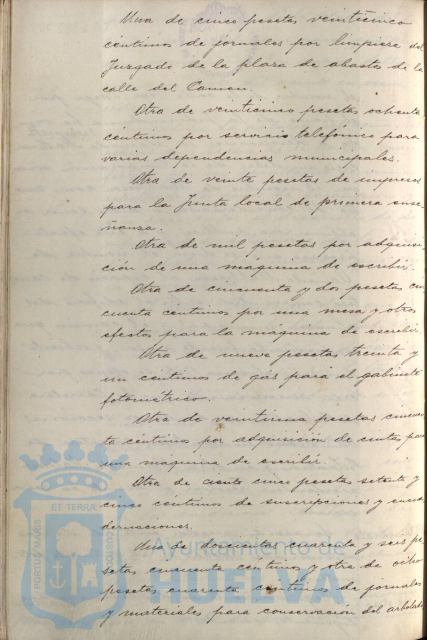 Una de cinco pesetas veinticinco
céntimos de jornales por limpieza del
Juzgado de la plaza de abastos de la
calle del Carmen.
Otra de veinticinco pesetas ochenta
céntimos por servicio telefónico para
varias dependencias municipales.
Otra de veinte pesetas de impresos
para la Junta local de primera ense
ñanza.
Otra de mil pesetas por adquisi
ción de una máquina de escribir.
Otra de cincuenta y dos pesetas cin
cuenta céntimos por una mesa y otros
efectos para la máquina de escribir.
Otra de nueve pesetas treinta y
un céntimos de gás para el gabinete
fotométrico.
Otra de veintiuna pesetas cincuen
ta céntimos por adquisición de cintas para
una máquina de escribir.
Otra de ciento cinco pesetas setenta y
cinco céntimos de suscripciones y encua
dernaciones.
Una de doscientas cuarenta y seis pe
setas cincuenta céntimos y otra de ocho
pesetas cuarenta céntimos de jornales
y materiales para conservación del arbolado
PORTUS MARIS ET TERRAE CUSTODIA
Ayuntamiento de
HUELVA